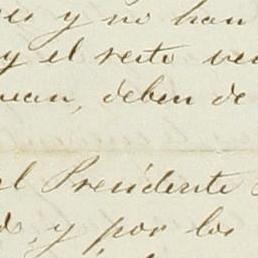 y no han
y el resto ven
quean, deben de
el Presidente
do, y por los